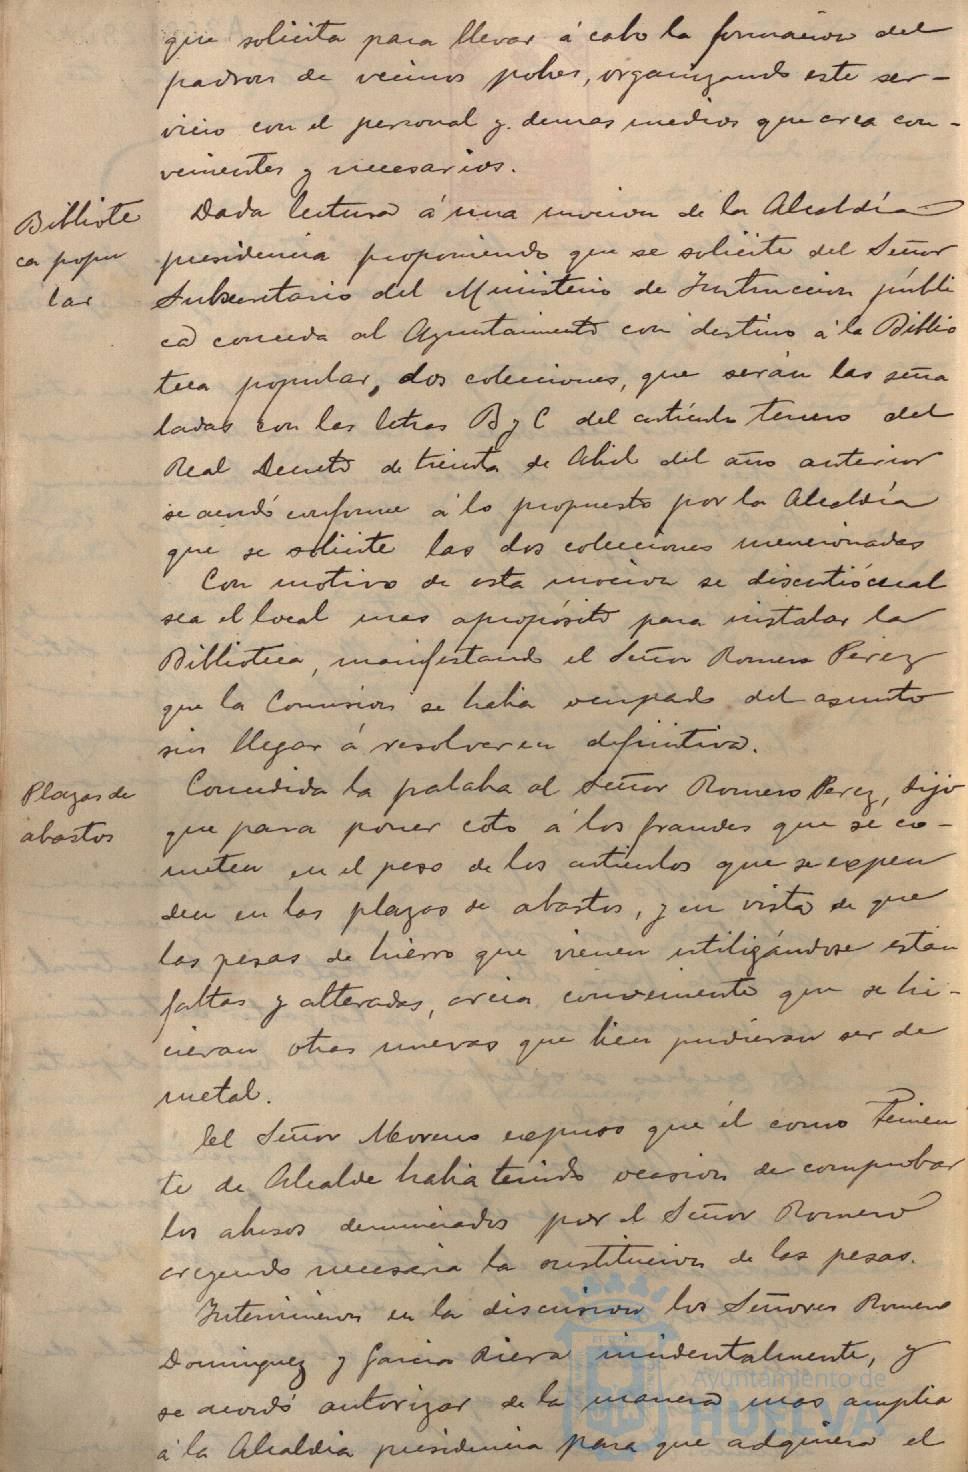 que solicita para llevar á cabo la formacion del
padron de vecinos pobres, organizando este ser-
vicio con el personal y demas medios que crea con-
venientes y necesarios.
Bibliote
ca popu
lar
Dada lectura á una mocion de la Alcaldía
presidencia proponiendo que se solicite del Señor
Subsecretario del Ministerio de Instruccion públi
ca conceda al Ayuntamiento con destino á la Biblio
teca popular, dos colecciones, que serán las seña
ladas con las letras B y C del artículo tercero del
Real Decreto de treinta de Abril del año anterior
se acordó conforme á lo propuesto por la Alcaldía
que se solicite las dos colecciones mencionadas
Con motivo de esta mocion se discutió cual
sea el local mas apropósito para instalar la
Biblioteca, manifestando el Señor Romero Perez
que la Comision se habia ocupado del asunto
sin llegar á resolver en definitiva.
Plazas de
abastos
Concedida la palabra al Señor Romero Perez, dijo
que para poner coto á los fraudes que se co-
meten en el peso de los artículos que se expen
den en las plazas de abastos, y en vista de que
las pesas de hierro que vienen utilizándose están
faltas y alteradas, creia conveniente que se hi-
cieran otras nuevas que bien pudieran ser de
metal.
El Señor Moreno expuso que él como Tenien
te de Alcalde habia tenido ocasion de comprobar
los abusos denunciados por el Señor Romero
creyendo necesaria la sustitucion de las pesas.
Intervinieron en la discusion los Señores Romero
Dominguez y Garcia Riera incidentalmente, y
se acordó autorizar de la manera mas amplia
á la Alcaldia presidencia para que adquiera el
Ayuntamiento de
HUELVA